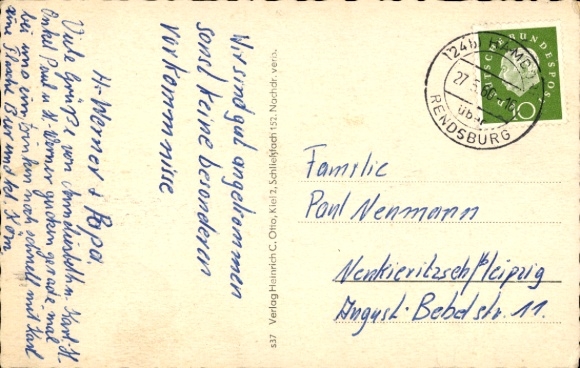 Wir sind gut angekommen
sonst keine besonderen
Vorkommnisse
H-Werner + Papa
Viele Grüße von Karl-H.
Onkel Paul u. H-Werner gerade mal
bei uns ein trinken schnell mit Karl
ein
s37 Verlag Heinrich C. Otto, Kiel 2, Schließfach 152. Nachdr. verb.
(24b) HAMD
27.5.60-16
über
RENDSBURG
DEUTSCHE BUNDESPOST
10
Familie
Paul Neumann
Neukieritzsch/Leipzig
August-Bebelstr. 11.